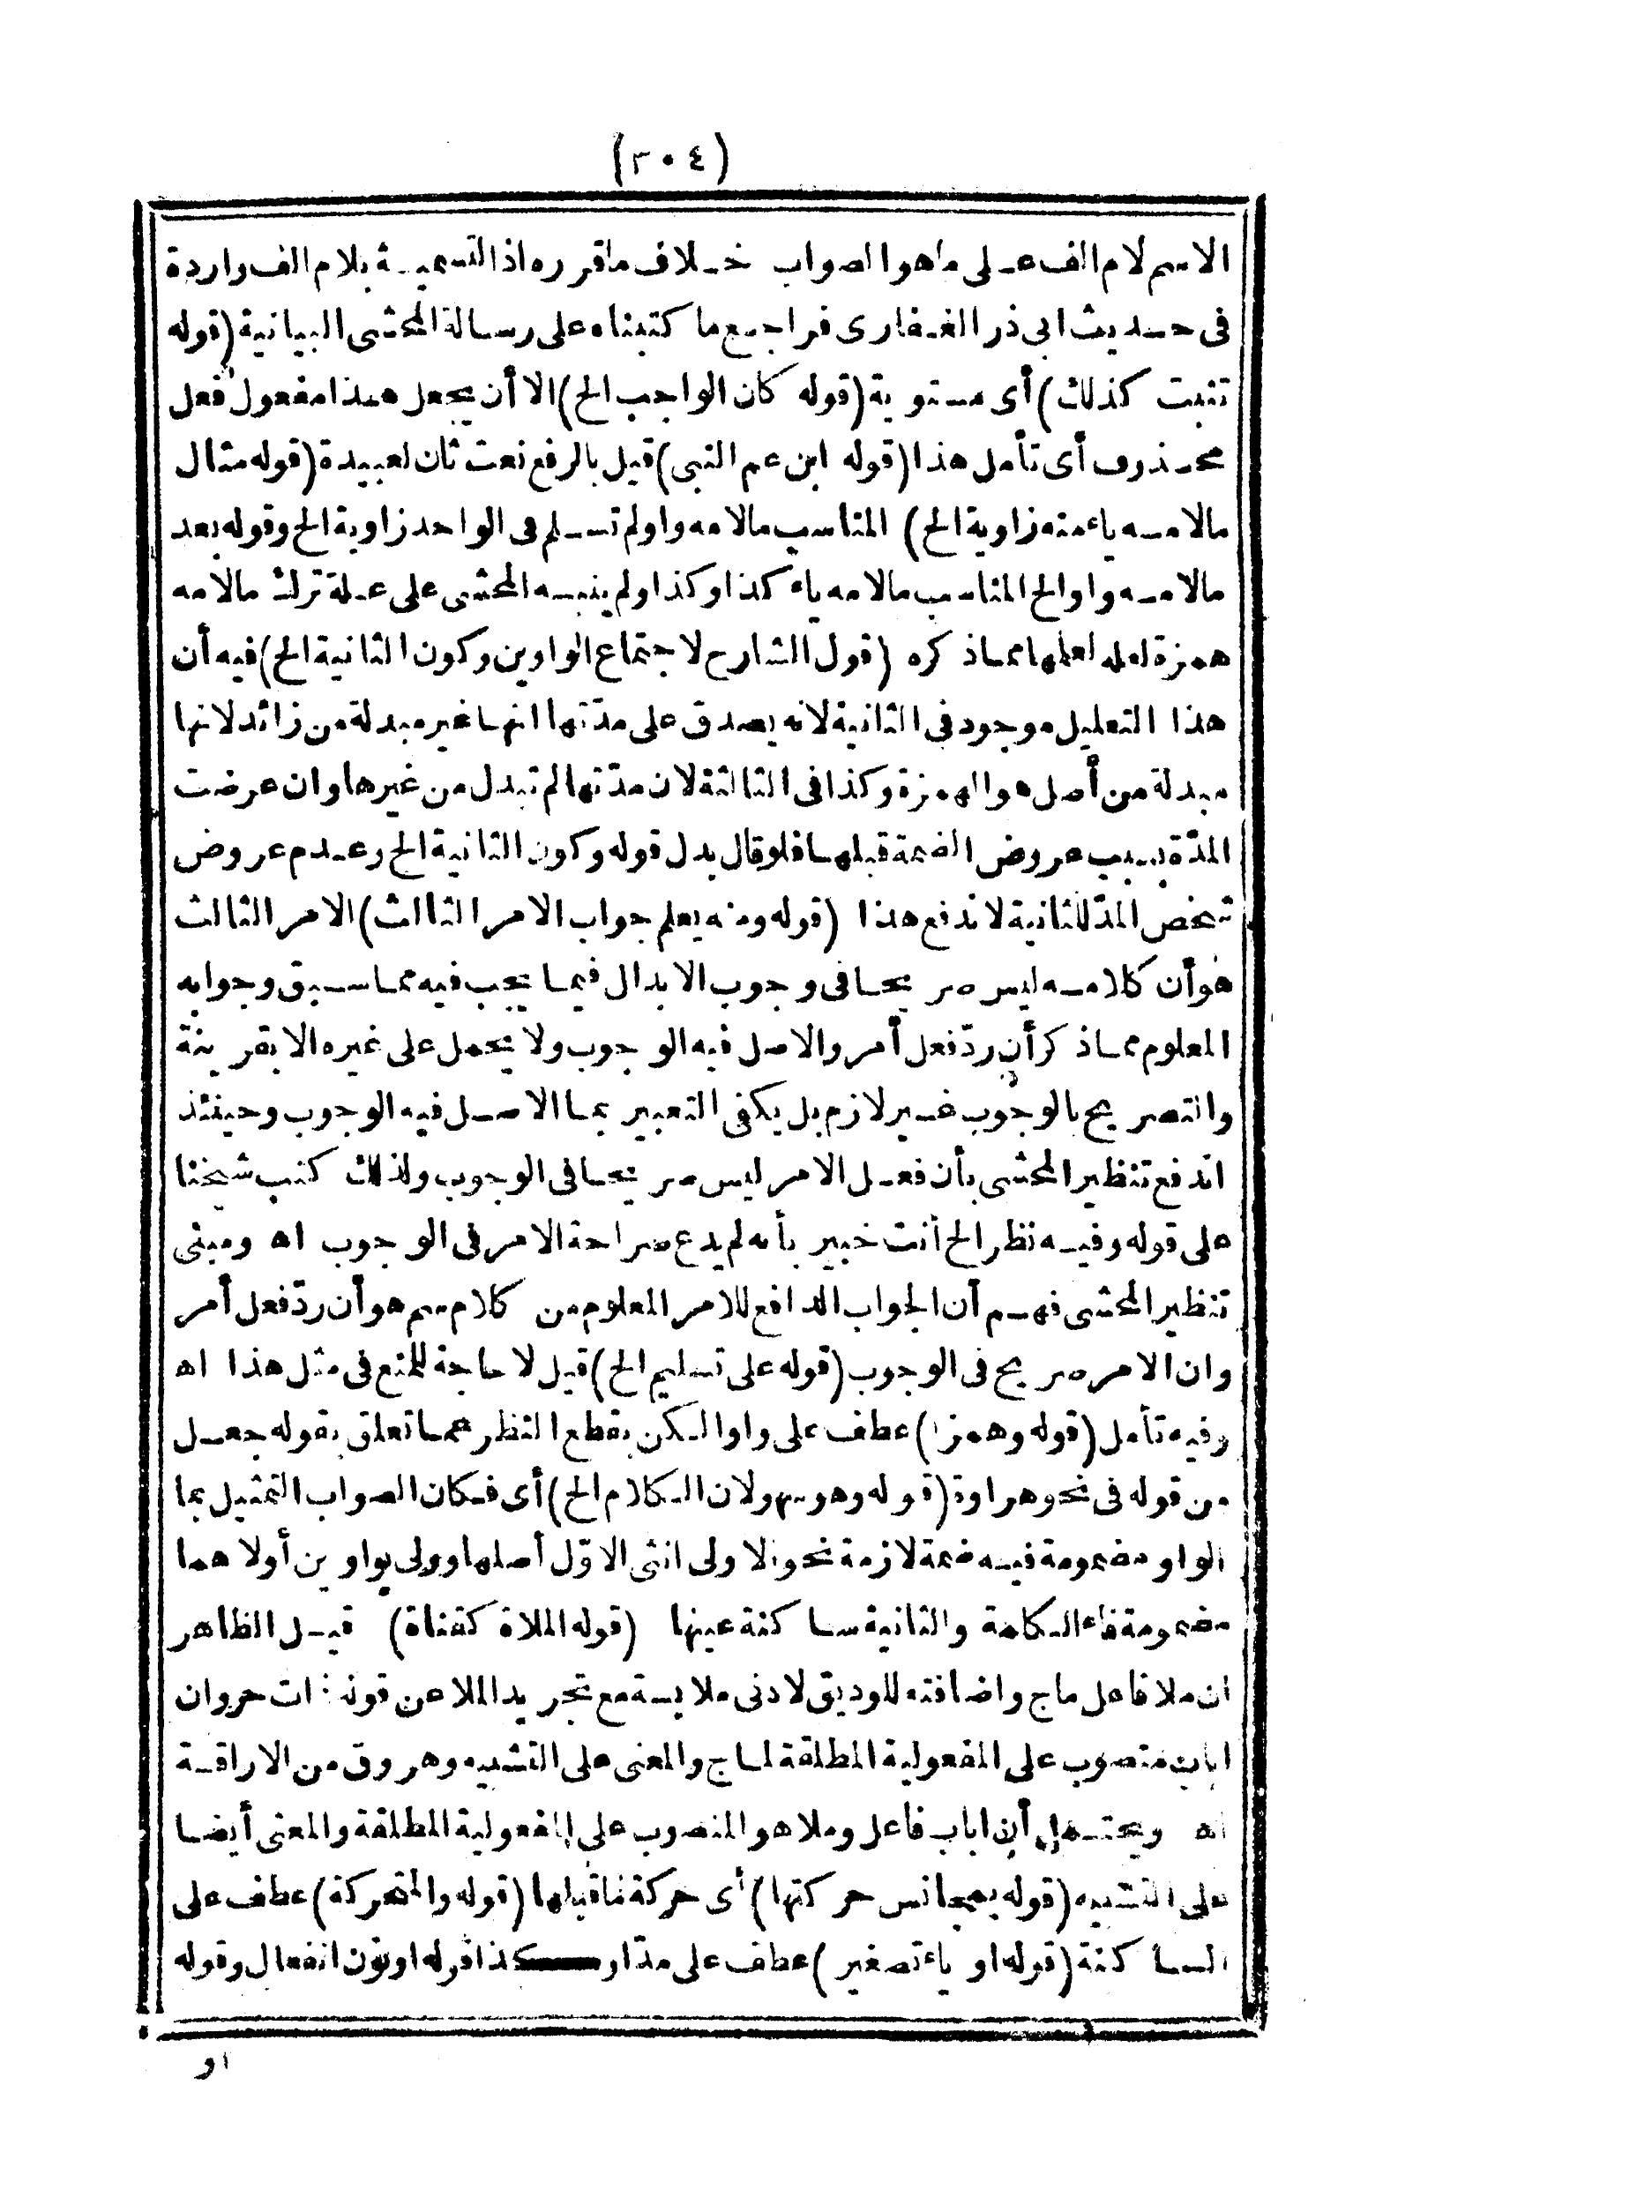 (٣٠٤)
الاسم لام الف على ما هو الصواب خلاف ما قرره اذ التسمية بلام الف واردة
فى حديث ابى ذر الغفارى فراجع ما كتبناه على رسالة المحشى البيانية (قوله
تنبت كذلك) أى مستوية (قوله كان الواجب الخ) الا أن يجعل هذا مفعول فعل
محذوف أى تأمل هذا (قوله ابن عم النبى) قيل بالرفع نعت ثان لعبيدة (قوله مثال
مالامه ياء منه زاوية الخ) المناسب مالامه واو لم تسلم فى الواحد زاوية الخ وقوله بعد
مالامه واو الخ المناسب مالامه ياء كذا وكذا ولم ينبه المحشى على علة ترك مالامه
همزة لعله لعلمها مما ذكره (قول الشارح لاجتماع الواوين وكون الثانية الخ) فيه أن
هذا التعليل موجود فى الثانية لانه يصدق على مدّتها انها غير مبدلة من زائد لانها
مبدلة من أصل هو الهمزة وكذا فى الثالثة لان مدّتها لم تبدل من غيرها وان عرضت
المدّة بسبب عروض الضمة قبلها فلو قال بدل قوله وكون الثانية الخ وعدم عروض
شخص المدّ للثانية لاندفع هذا (قوله ومنه يعلم جواب الامر الثالث) الامر الثالث
هو أن كلامه ليس صريحا فى وجوب الابدال فيما يجب فيه مما سبق وجوابه
المعلوم مما ذكر أن ردّ فعل أمر والاصل فيه الوجوب ولا يحمل على غيره الا بقرينة
والتصريح بالوجوب غير لازم بل يكفى التعبير بما الاصل فيه الوجوب وحينئذ
اندفع تنظير المحشى بأن فعل الامر ليس صريحا فى الوجوب ولذلك كتب شيخنا
على قوله وفيه نظر الخ أنت خبير بأنه لم يدع صراحة الامر فى الوجوب اه ومبنى
تنظير المحشى فهم أن الجواب الدافع للامر المعلوم من كلام سم هو أن ردّ فعل أمر
وان الامر صريح فى الوجوب (قوله على تسليم الخ) قيل لا حاجة للمنع فى مثل هذا اه
وفيه تأمل (قوله وهمزا) عطف على واوا لكن بقطع النظر عما تعلق بقوله جعل
من قوله فى نحو هراوة (قوله وهو سهو لان الكلام الخ) أى فكان الصواب التمثيل بما
الواو مضمومة فيه ضمة لازمة نحو الاولى انثى الاوّل أصلها وولى بواوين أولاهما
مضمومة فاء الكلمة والثانية ساكنة عينها (قوله الملاة كقناة) قيل الظاهر
ان ملا فاعل ماج واضافته للوديق لادنى ملابسة مع تجريد الملا عن قوله ذات حر وان
اباب منصوب على المفعولية المطلقة لماج والمعنى على التشبيه وهروق من الاراقة
اه ويحتمل أن اباب فاعل وملا هو المنصوب على المفعولية المطلقة والمعنى أيضا
على التشبيه (قوله بمجانس حركتها) أى حركة ما قبلها (قوله والمتحركة) عطف على
الساكنة (قوله او ياء تصغير) عطف على مدّا وكذا قوله او نون انفعال وقوله
او